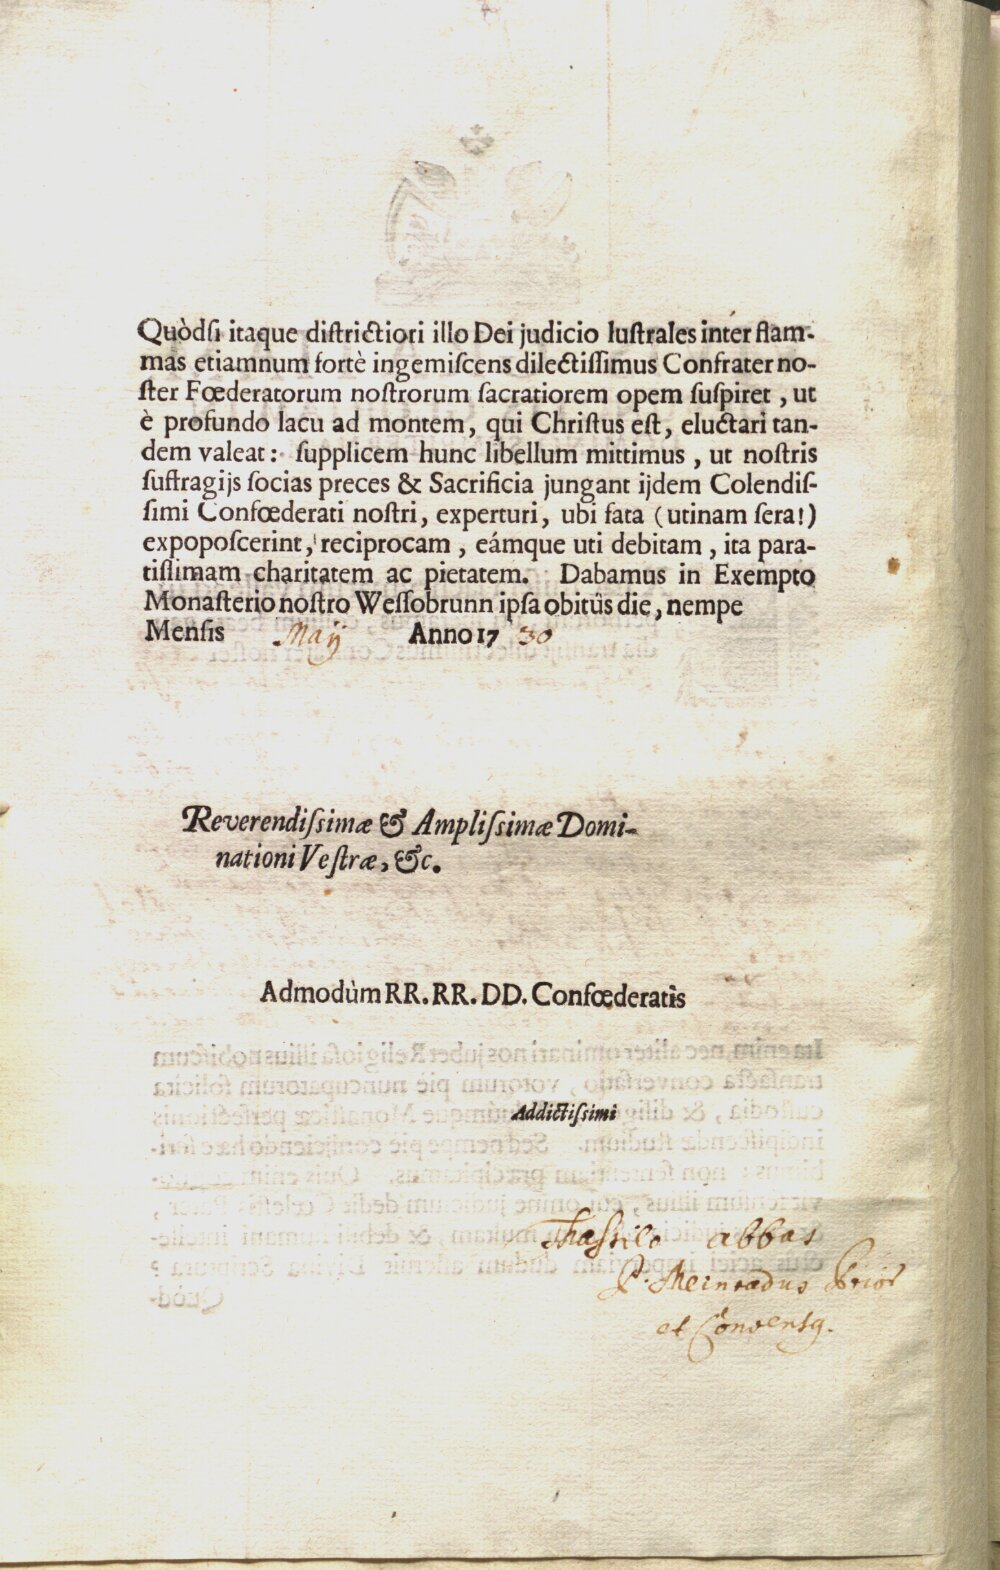 Quòdſi itaque diſtrictiori illo Dei judicio luſtrales inter flam-
mas etiamnum fortè ingemiſcens dilectiſſimus Confrater no-
ſter Fœderatorum noſtrorum ſacratiorem opem ſuſpiret , ut
è profundo lacu ad montem, qui Chriſtus eſt, eluctari tan-
dem valeat : ſupplicem hunc libellum mittimus , ut noſtris
ſuffragijs ſocias preces & Sacrificia jungant ijdem Colendiſ-
ſimi Confœderati noſtri, experturi, ubi fata (utinam ſera!)
expopoſcerint, reciprocam , eámque uti debitam , ita para-
tiſſimam charitatem ac pietatem. Dabamus in Exempto
Monaſterio noſtro Weſſobrunn ipſa obitûs die, nempe
Menſis Maij Anno 17 30
Reverendiſsimæ & Ampliſsimæ Domi-
nationi Veſtræ, &c.
Admodùm RR. RR. DD. Confœderatis
Addictiſsimi
Thaſsilo abbas
P. Meinradus Prior
et Convensq.